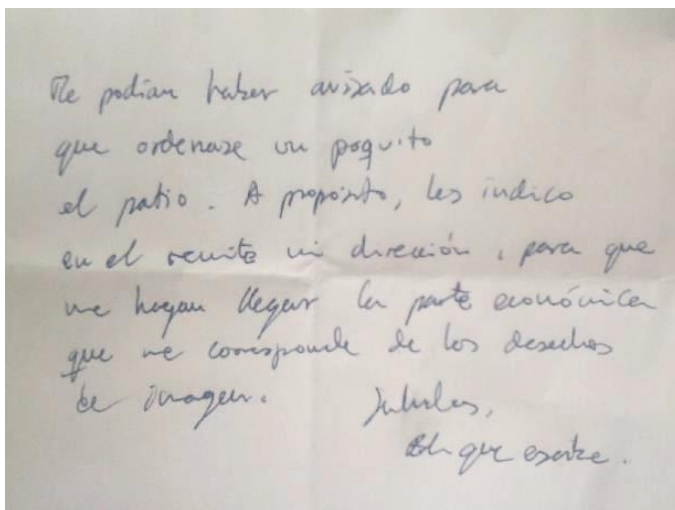 Me podian haber avisado para
que ordenase un poquito
el patio. A propósito, les indico
en el remite mi dirección, para que
me hagan llegar la parte económica
que me corresponde de los desechos
de imagen.
El que escribe.